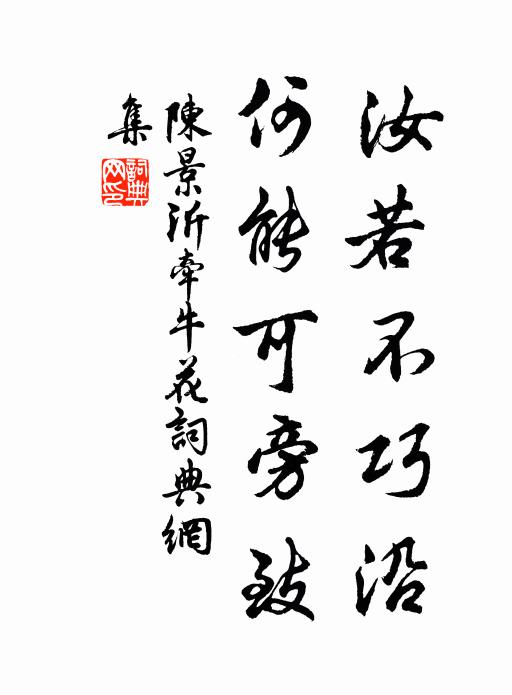 汝若不巧沿
何能可旁致
陳景沂牽牛花詞典網
集
詞典網印